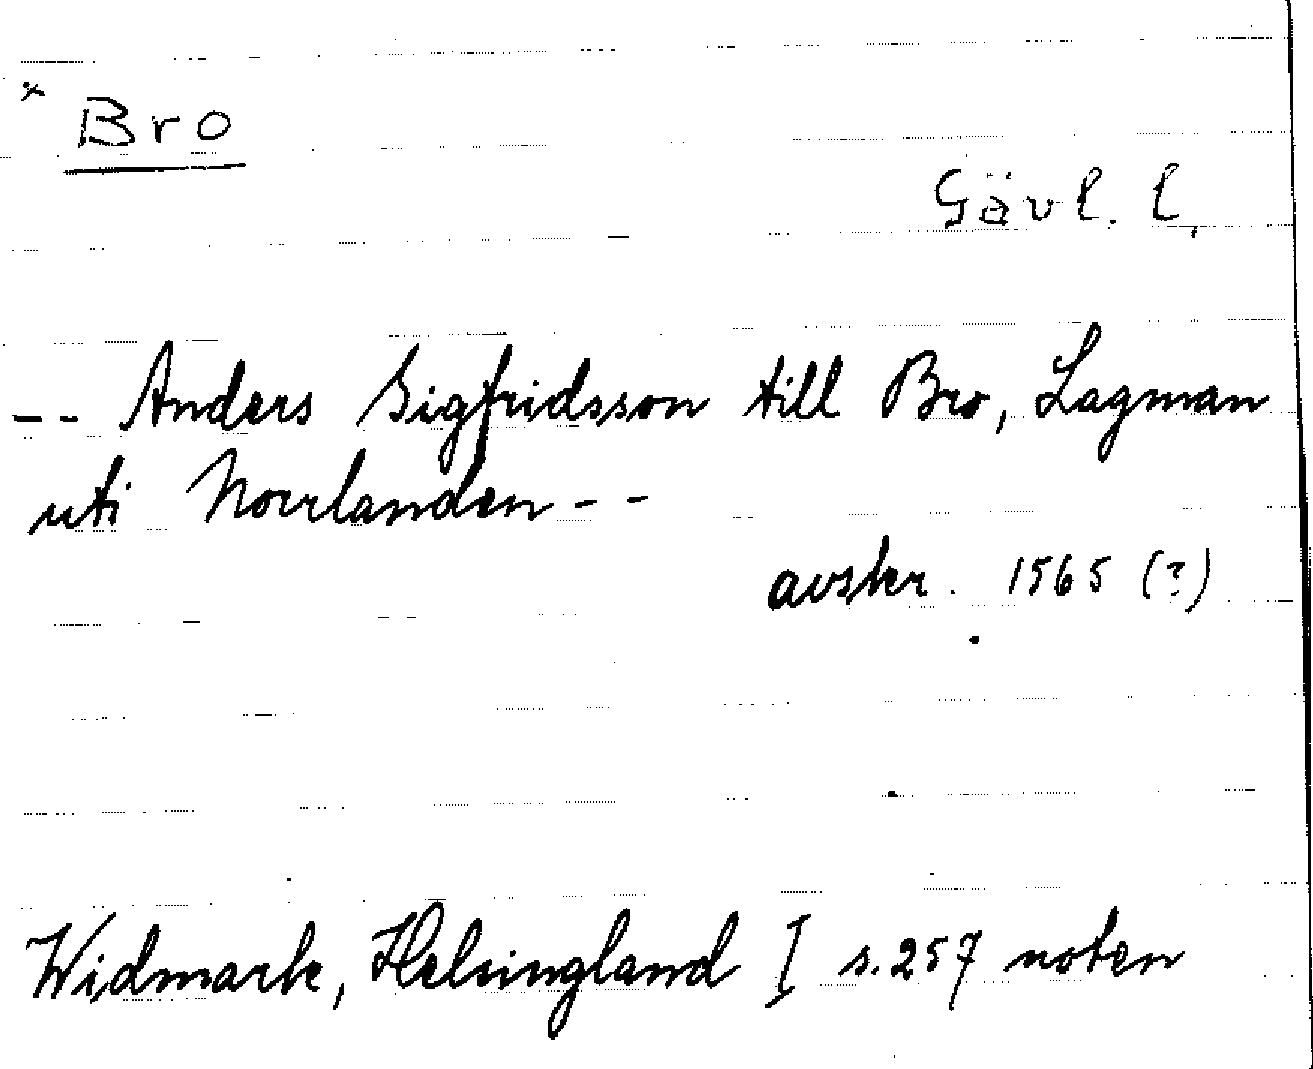 x Bro
Gävl. l.
-- Anders Sigfridsson till Bro, Lagman
uti Norrlanden --
avskr. 1565 (?)
Widmark, Helsingland I s. 257 noten